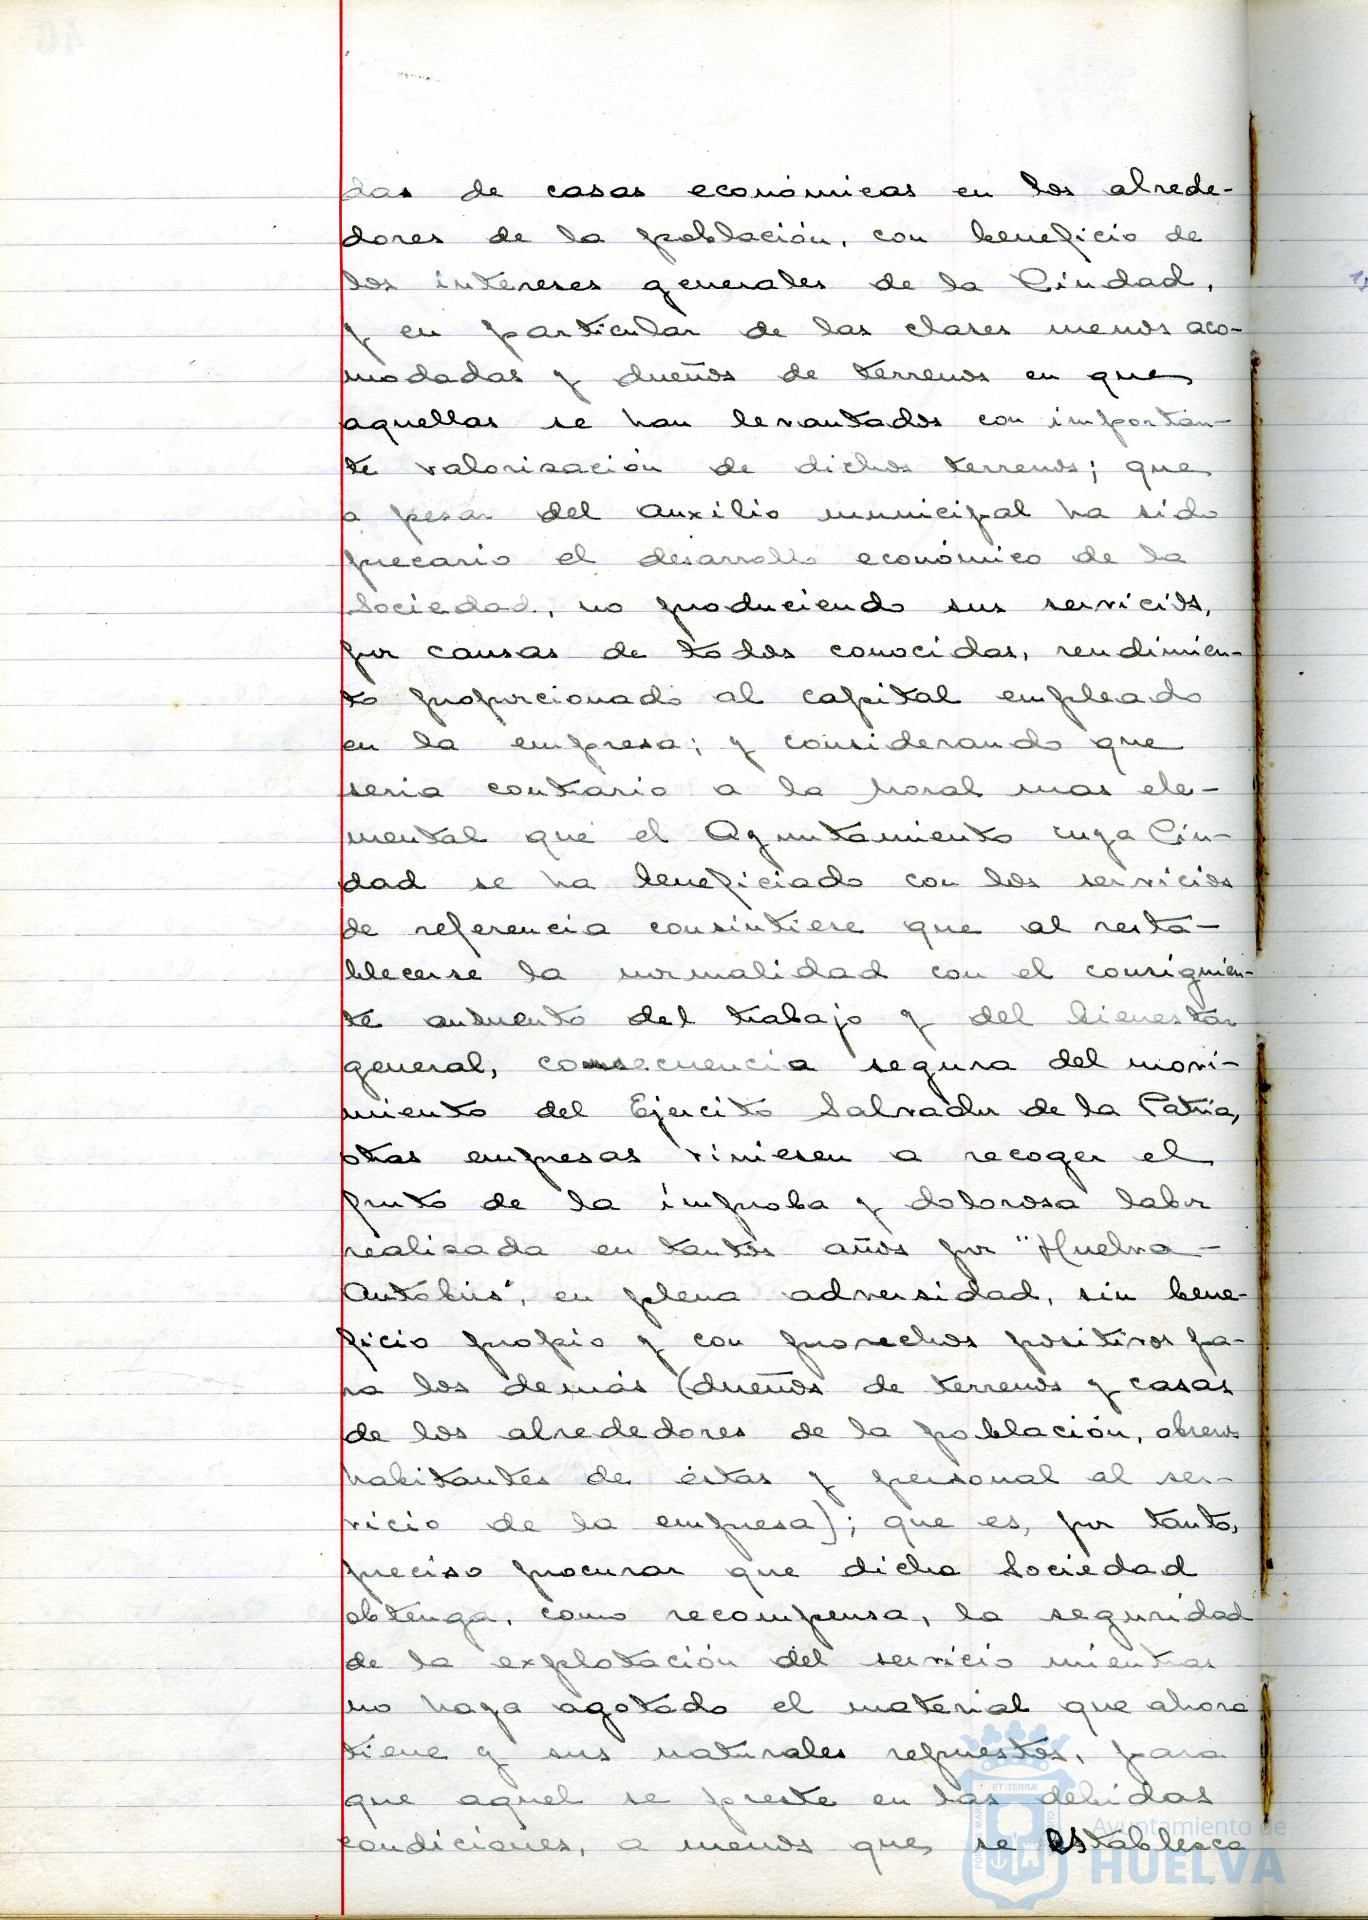 das de casas económicas en los alrede-
dores de la población, con beneficio de
los intereses generales de la Ciudad,
y en particular de las clases menos aco-
modadas y dueños de terrenos en que
aquellas se han levantados con importan-
te valorización de dichos terrenos; que
a pesar del auxilio municipal ha sido
precario el desarrollo económico de la
Sociedad, no produciendo sus servicios,
por causas de todos conocidas, rendimien-
to proporcionado al capital empleado
en la empresa; y considerando que
seria contrario a la moral mas ele-
mental que el Ayuntamiento cuya Ciu-
dad se ha beneficiado con los servicios
de referencia consintiese que al resta-
blecerse la normalidad con el consiguien-
te aumento del trabajo y del bienestar
general, consecuencia segura del movi-
miento del Ejercito Salvador de la Patria,
otras empresas viniesen a recoger el
fruto de la ímproba y dolorosa labor
realizada en tantos años por "Huelva-
Autobús", en plena adversidad, sin bene-
ficio propio y con provechos positivos pa-
ra los demás (dueños de terrenos y casas
de los alrededores de la población, obreros
habitantes de éstas y personal al ser-
vicio de la empresa); que es, por tanto,
preciso procurar que dicha Sociedad
obtenga, como recompensa, la seguridad
de la explotación del servicio mientras
no haya agotado el material que ahora
tiene y sus naturales repuestos, para
que aquel se preste en las debidas
condiciones, a menos que se establezca
Ayuntamiento de
HUELVA